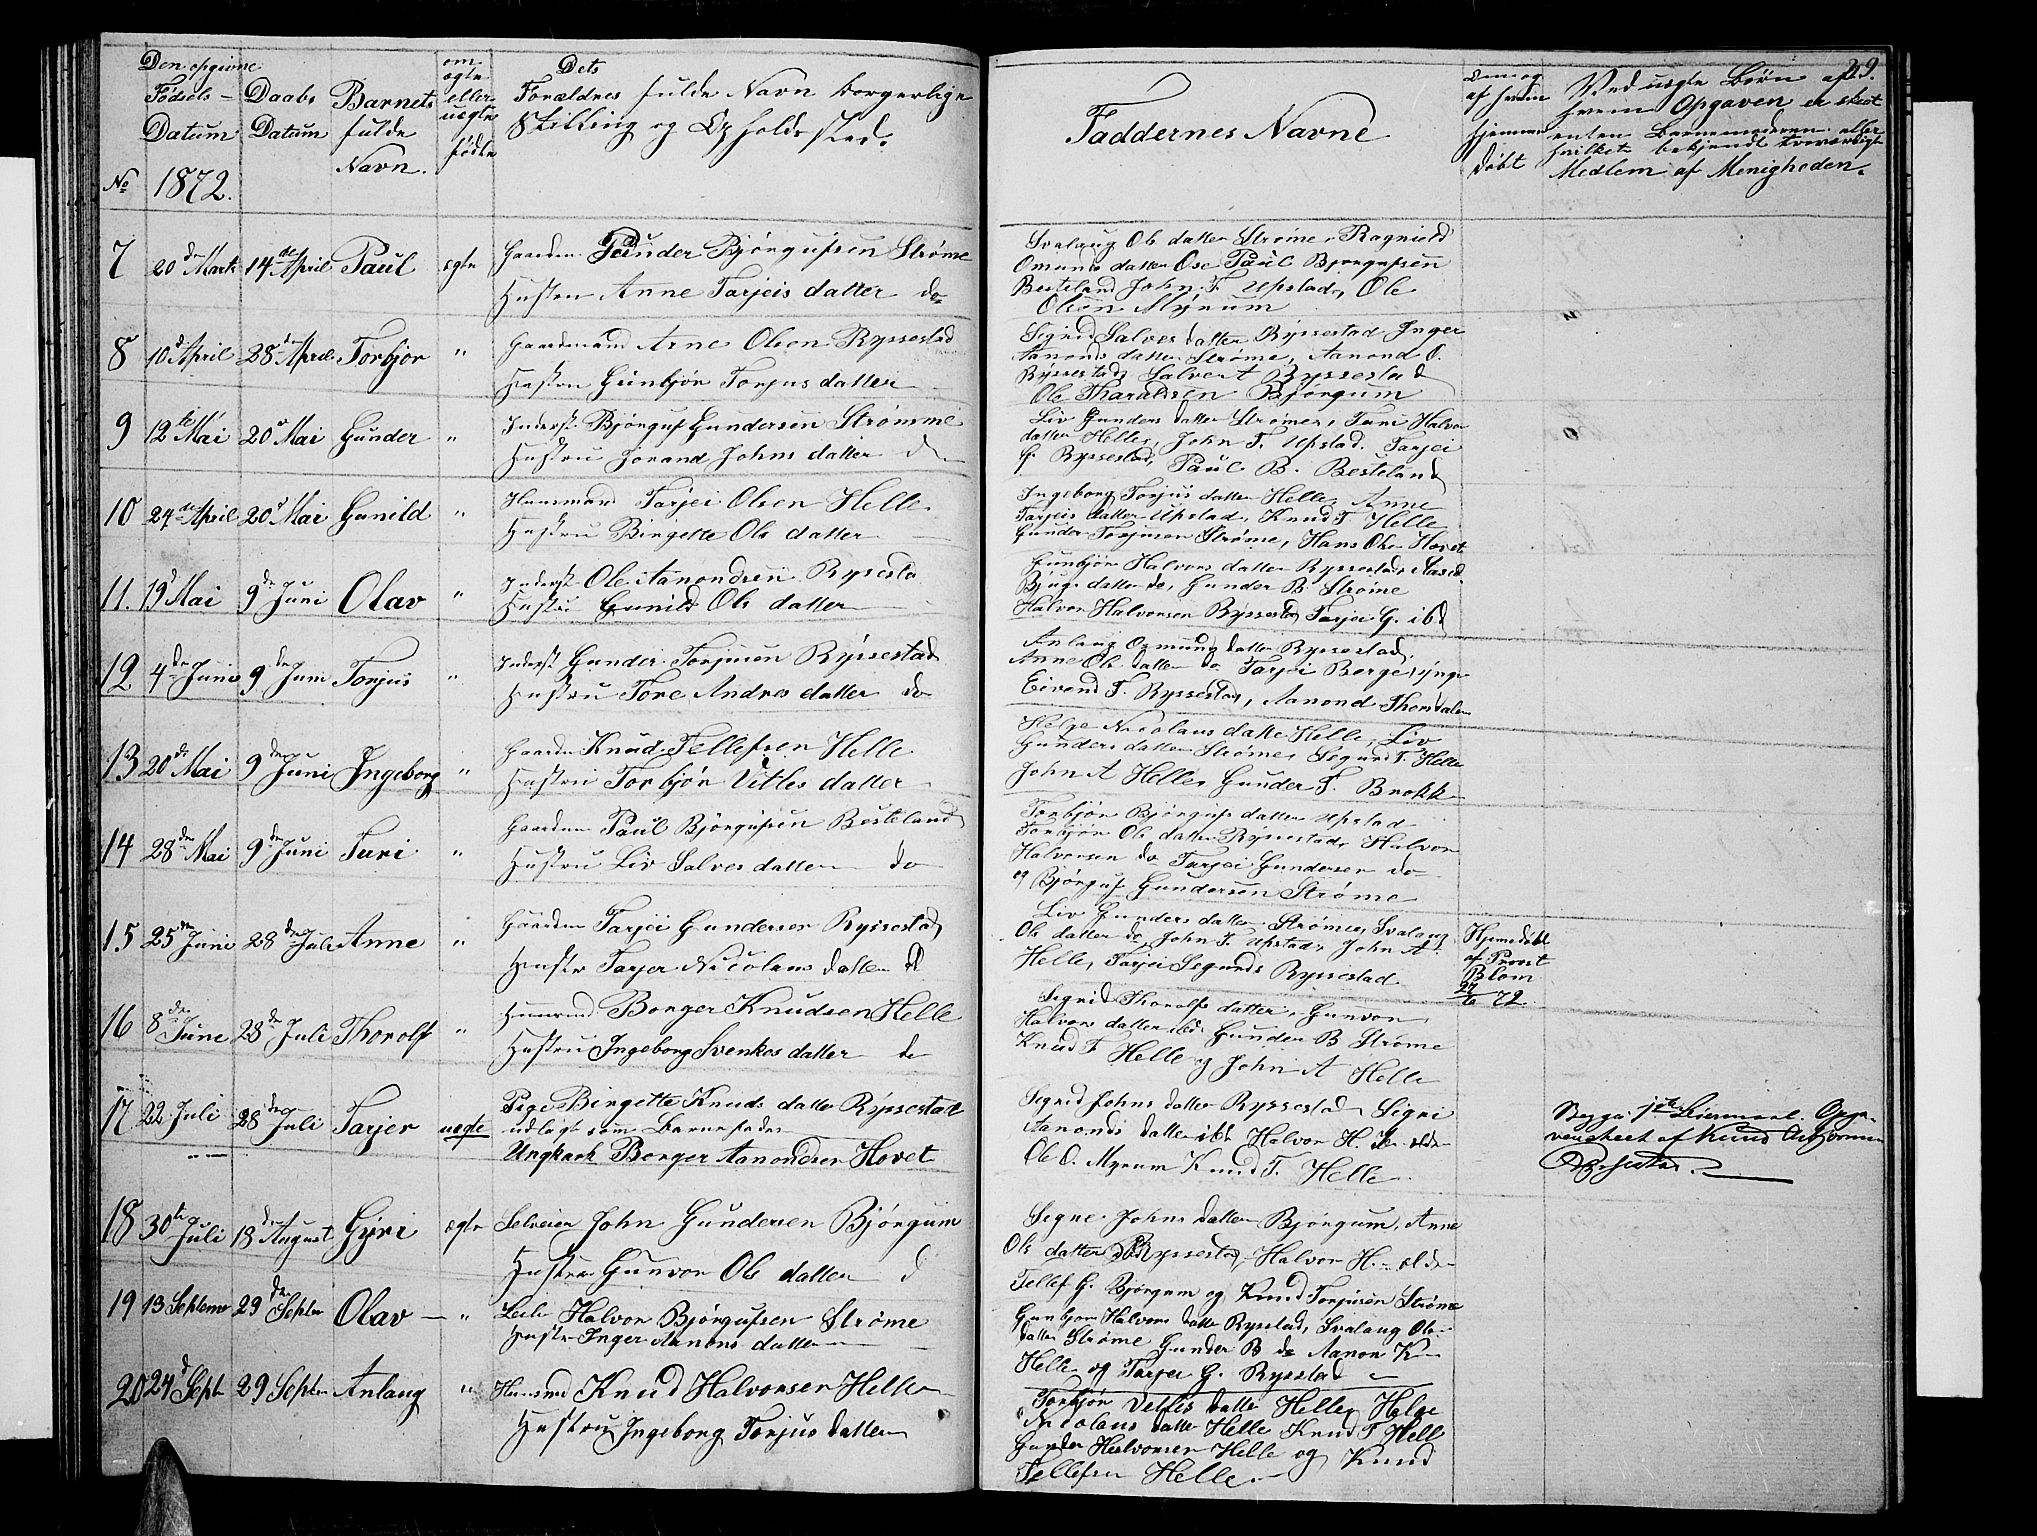 29.
Den opgivne Fødsels- Datum 1872.
Daabs Datum
Barnets fulde Navn.
om ægte eller uægte fødte
Dets Forældres fulde Navn borgerlige Stilling og Opholdssted.
Faddernes Navne
af hvem hjemmedøbt
Ved uægte Børn af hvem Opgaven er skeet enten Barnemoderen eller hvilket bekjendt troværdigt Medlem af Menigheden.
No
7 20de Marts 14de April Paul ægte Gaardm Gunder Bjørgufsen Strøme
Hustru Anne Tarjeis datter do
Svalaug Ols datter Strøme, Ragnild
Omunds datter Ose Paul Bjørgufsen
Besteland John T. Upstad, Ole
Olsen Myrum
8 10d April 28d April Torbjør " Gaardmand Arne Olsen Ryssestad
Hustru Gunbjør Torjus datter
Sigrid Salves datter Ryssestad Inger
Aanonds datter Strøme, Aanond O.
Ryssestad Salve A Ryssestad
Ole Tharaldsen Bjørgum
9 12te Mai 20d Mai Gunder " Inderst Bjørguf Gundersen Strømme
Hustru Jorand Johns datter do
Liv Gunders datter Strøme, Turi Halvors
datter Helle, John T. Upstad. Tarjei
G. Ryssestad, Paul B. Besteland
10 24de April 20d Mai Gunild " Huusmand Tarjei Olsen Helle
Hustru Birgitte Ols datter
Ingeborg Torjus datter Helle, Anne
Tarjeis datter Upstad, Knud T Helle
Gunder Torjusen Strøme, Hans Olsen Hovet
11. 19d Mai 9de Juni Olav " Inderst Ole Aanondsen Ryssestad
Hustru Gunild Ols datter
Gunbjør Halvors datter Ryssestad,
Bjugs datter do, Gunder B Strøme
Halvor Halvorsen Ryssestad Tarjei G. ibd
12 4de Juni 9de Juni Torjus " Inderst Gunder Torjusen Ryssestad
Hustru Tore Andres datter do
Anlaug Osmunds datter Ryssestad,
Anne Ols datter do Tarjei Berge, yngr
Eivend T. Ryssestad, Aanond Thomdalen
13 20de Mai 9de Juni Ingeborg " Gaardm Knud Tellefsen Helle
Hustru Torbjør Vetles datter
Helge Nicolaus datter Helle, Liv
Gunders datter Strøme, Segurd T. Helle
John A Helle, Gunder T. Brokke
14 28de Mai 9de Juni Turi " Gaardm Paul Bjørgufsen Besteland
Hustru Liv Salves datter do
Torbjør Bjørgufs datter Upstad
Torbjør Ols datter Ryssestad, Halvor
Halvorsen do Tarjei Gundersen do
og Bjørguf Gundersen Strøme
15 25de Juni 28de Juli Anne " Gaardm Tarjei Gundersen Ryssestad
Hustru Tarjer Nicolaus datter d
Liv Gunders datter Strøme, Svalaug
Ols datter do, John T. Upstad, John A.
Helle, Tarjei Segurds Ryssestad
Hjemmedøbt
af Provst
Blom
27/6 72.
16 8de June 28de Juli Thorolf " Huusmd Borger Knudsen Helle
Hustru Ingeborg Svenkes datter do
Sigrid Thorolfs datter, Gunvor
Halvors datter ibd, Gunder B Strøme
Knud T Helle og John A Helle
17 22 Juli 28de Juli Tarjer uægte Pige Birgitte Knuds datter Ryssestad
udlagt som Barnefader
Ungkark Borger Aanondsen Hovet
Sigrid Johns datter Ryssestad Sigri
Aanonds datter ibd Halvor H. R. ældr
Ole O. Myrum Knud T. Helle
Begges 1ste Leiermaal. Opga-
ven skeet af Knud Asbjørnsen
Ryssestad
18 30te Juli 18de August Gyri ægte Selveier John Gundersen Bjørgum
Hustru Gunvor Ols datter d
Segne Johns datter Bjørgum, Anne
Ols datter Ryssestad, Halvor H. ældr
Tellef G. Bjørgum og Knud Torjusen Strøme
19 13 Septemr 29de Septr Olav " Leil: Halvor Bjørgufsen Strøme
Hustr Inger Aanons datter
Gunbjør Halvors datter Rysstad, Svalaug Ols
datter Strøme Gunder B do Aanon K
Helle og Tarjei G. Rysstad
20 24d Sept 29 Septr Anlaug " Huusmd Knud Halvorsen Helle
Hustru Ingeborg Torjus datter
Torbjør Vetles datter Helle, Helge
Nicolaus datter Helle Knud T Helle
Gunder Halvorsen Helle og Knud
Tellefsen Helle.